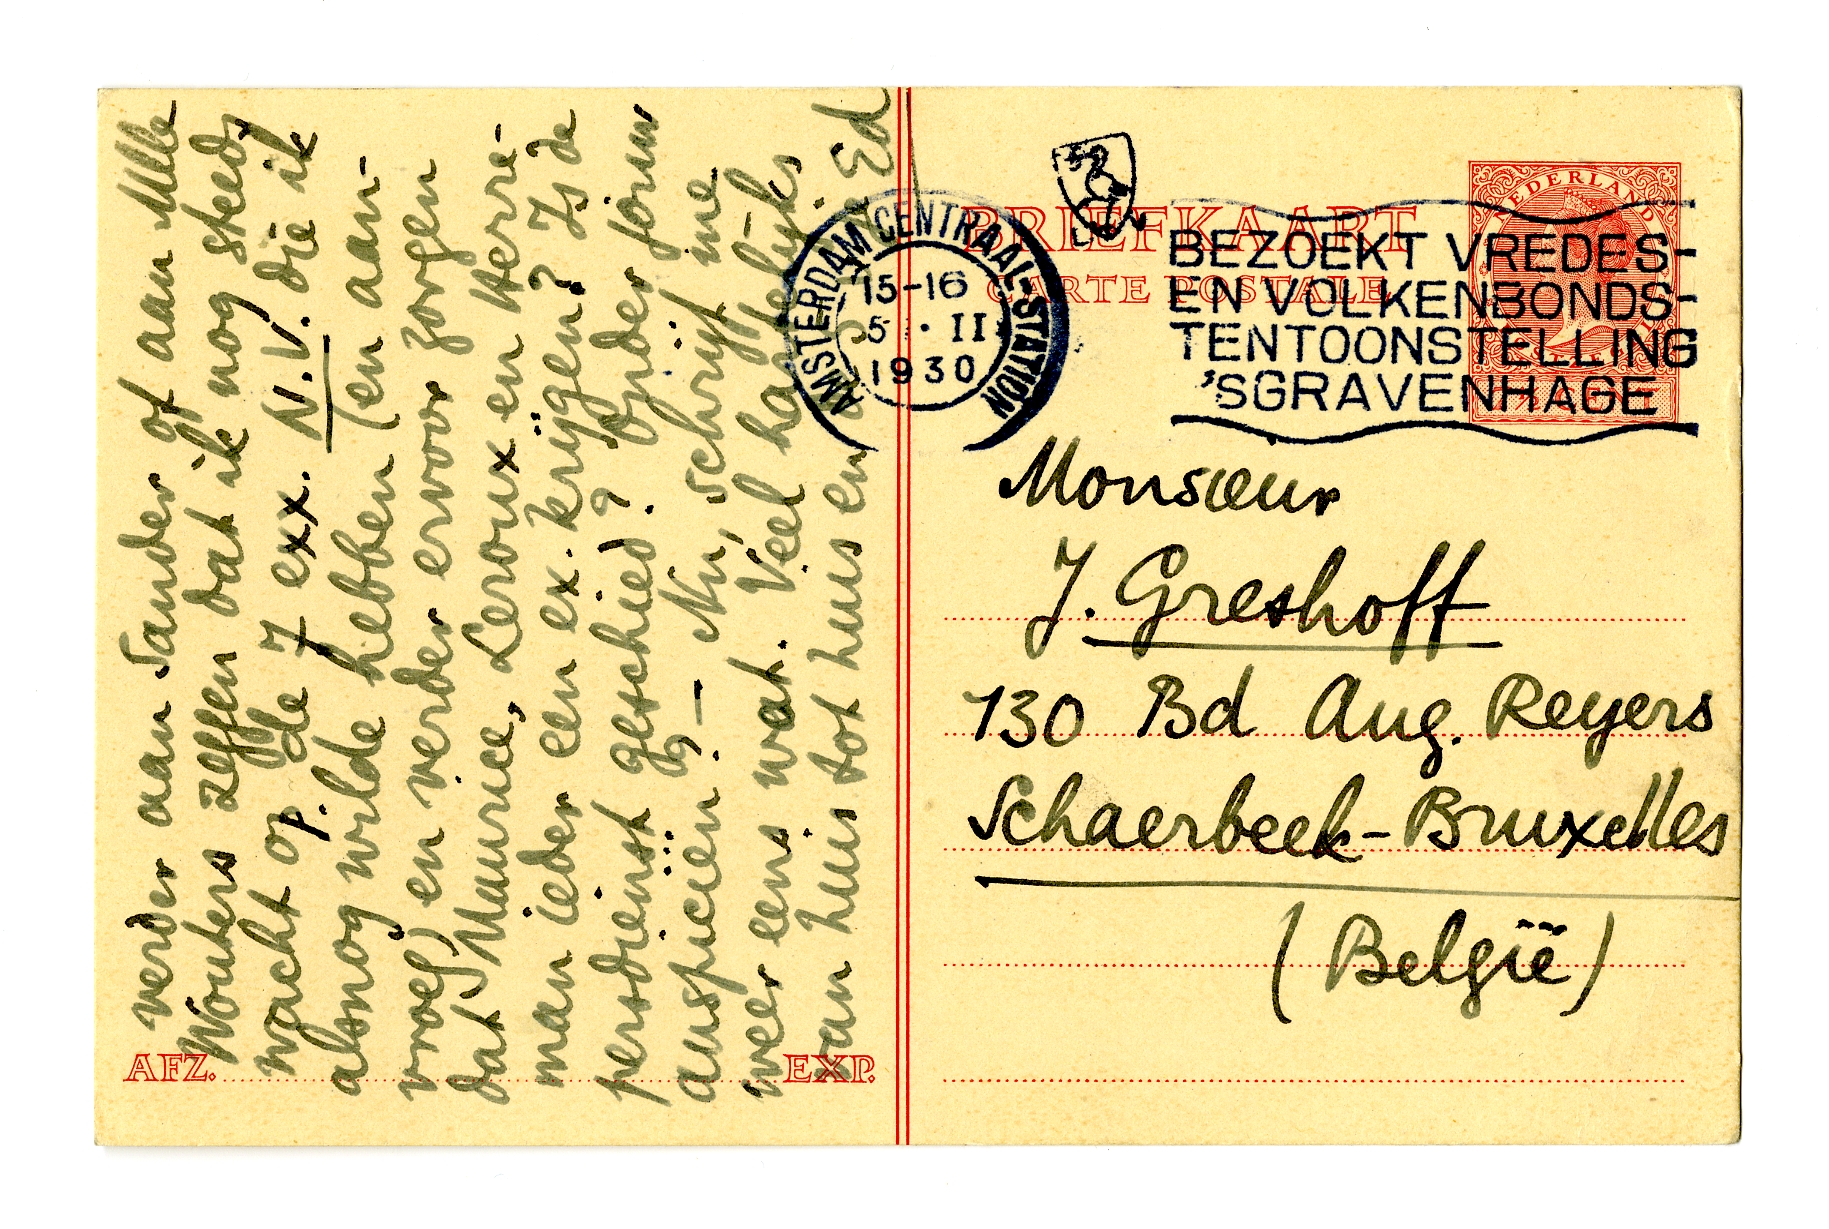 verder aan Sander of aan Mlle
Wouters zeggen dat ik nog steeds
wacht op de 7 exx. N.V. die ik
p.
alsnog wilde hebben (en aan-
vroeg) en verder ervoor zorgen
dat Maurice, Leroux en Herre-
man ieder een ex. krijgen? Is de
persdienst geschied? Onder jouw
auspiciën? — Nu, schrijf me
weer eens wat. Veel hartelijks
van huis tot huis en Ed
AFZ. EXP.
BRIEFKAART
CARTE POSTALE
NEDERLAND
AMSTERDAM CENTRAAL-STATION
15-16
5 · II
1930
BEZOEKT VREDES-
EN VOLKENBONDS-
TENTOONSTELLING
'SGRAVENHAGE
Monsieur
J. Greshoff
130 Bd Aug. Reyers
Schaerbeek-Bruxelles
(België)